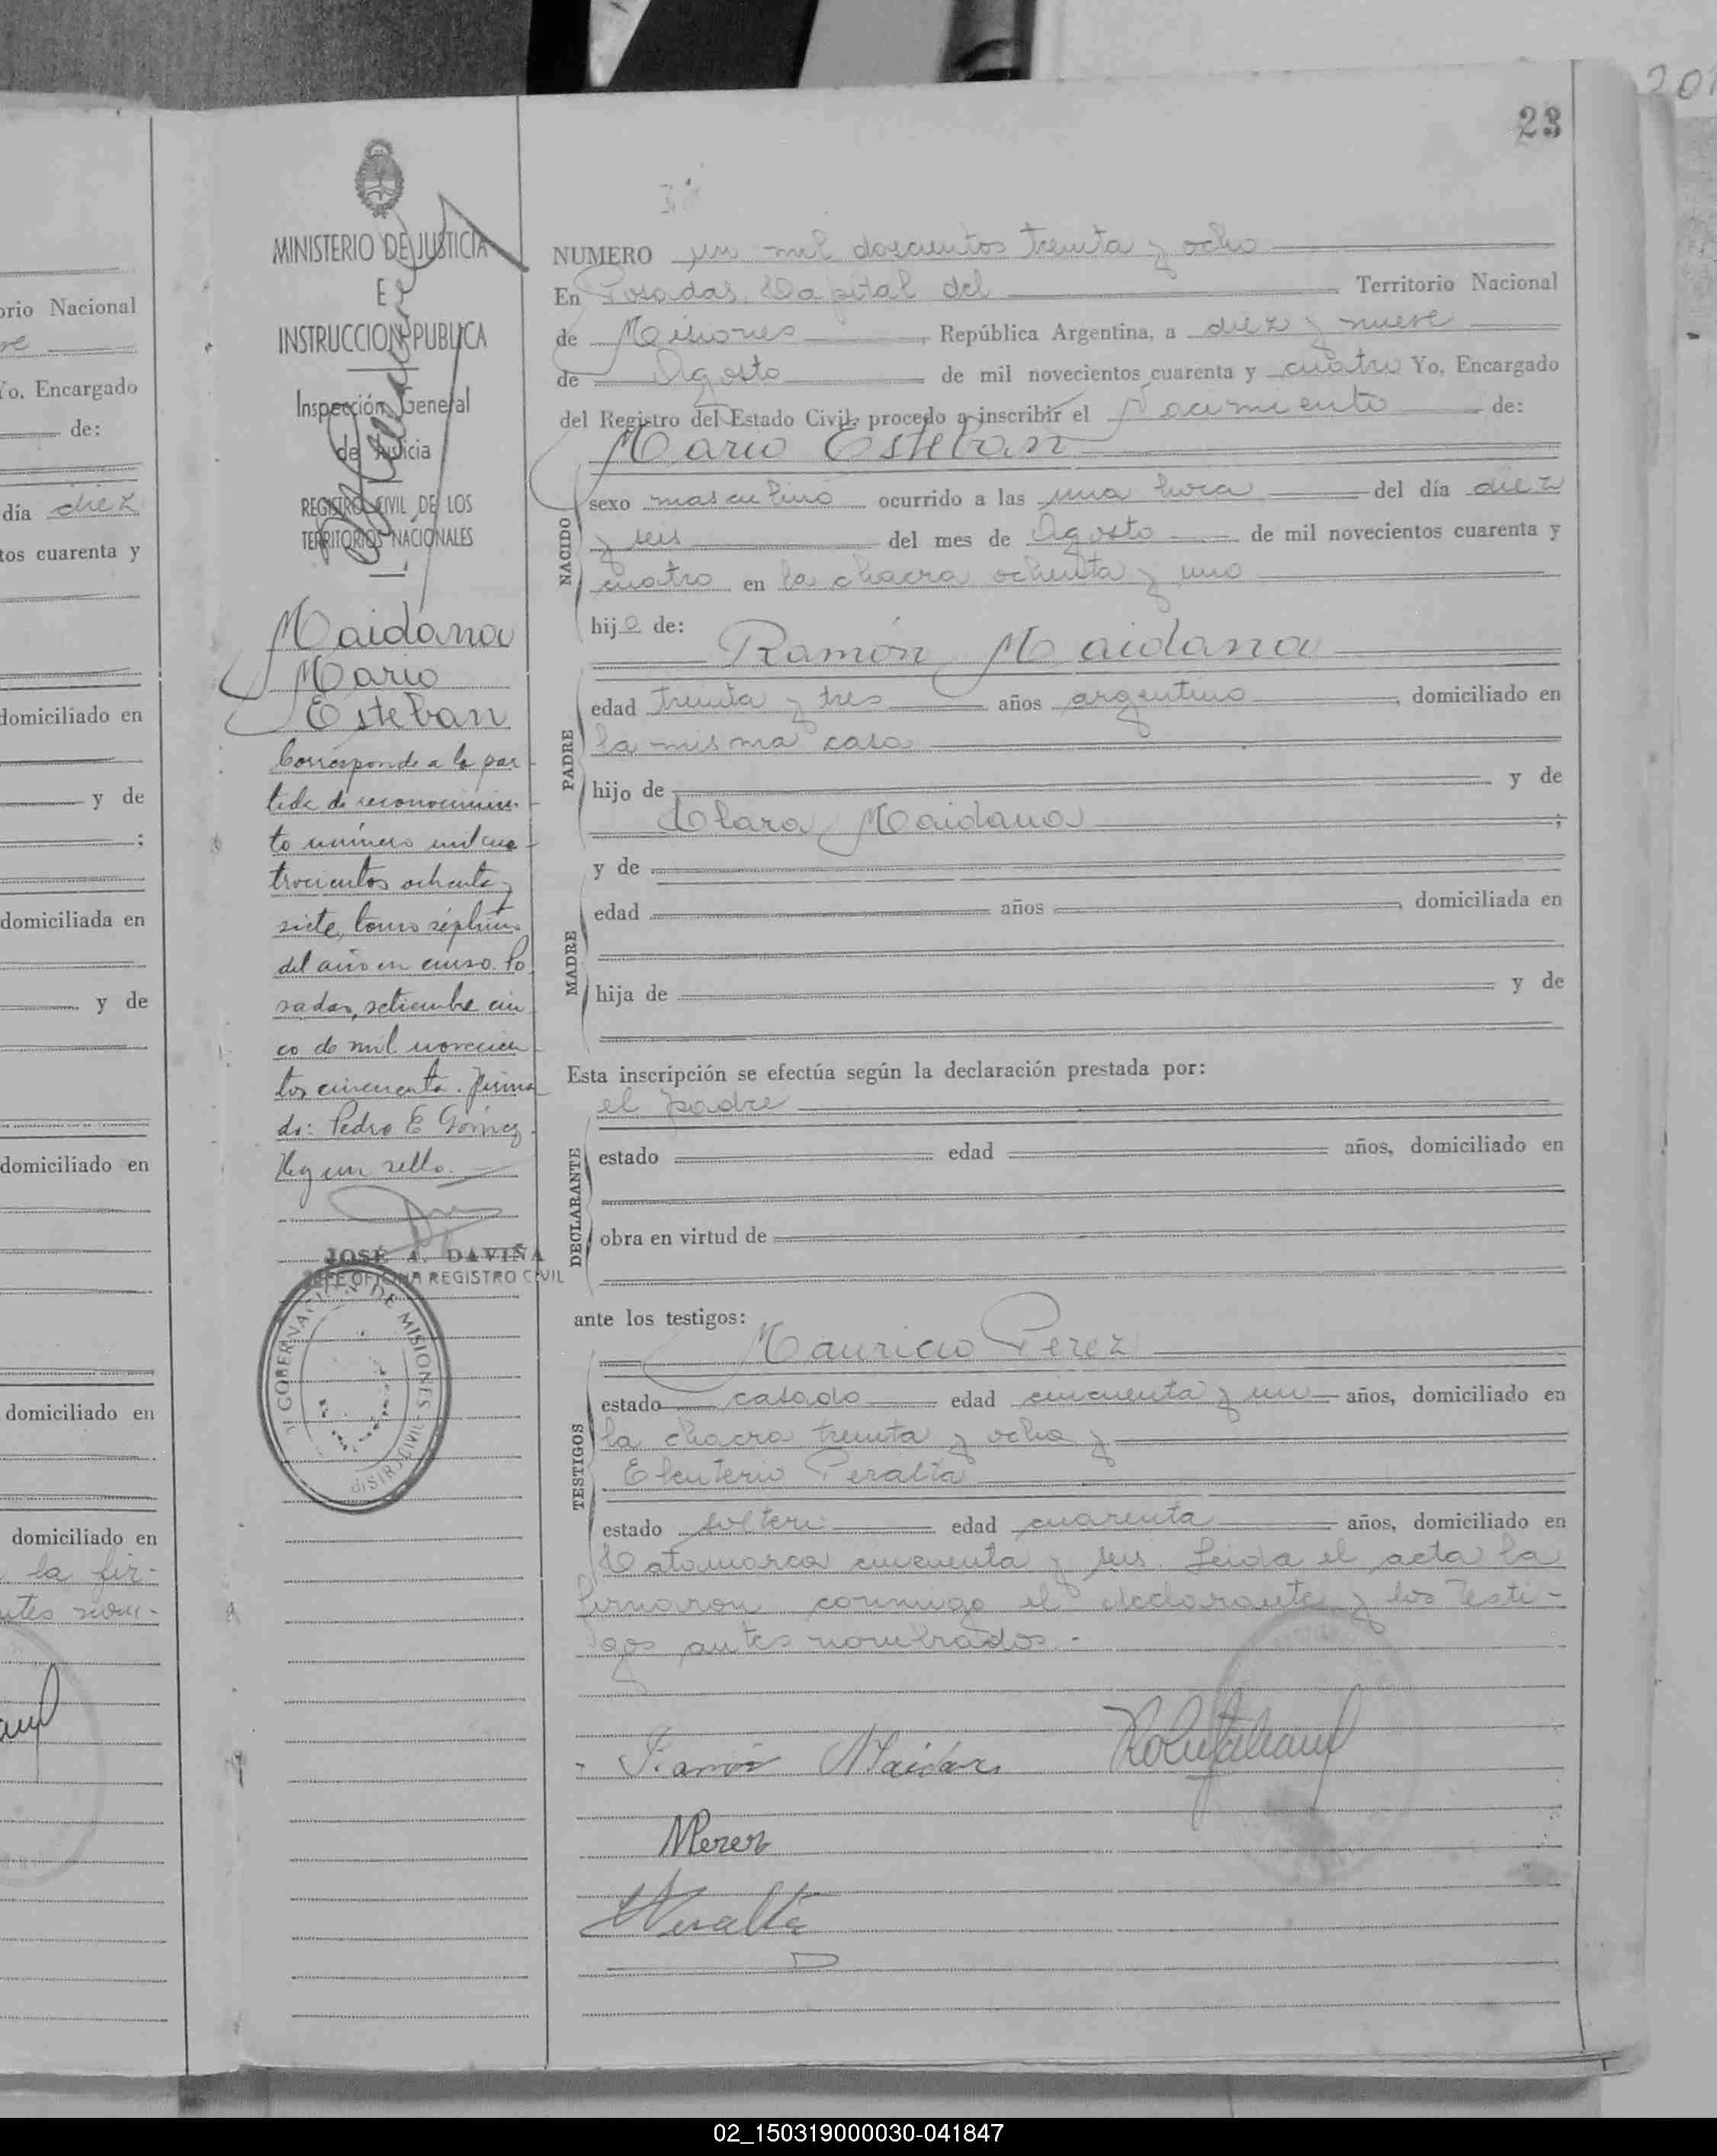 201
23
orio Nacional
Yo, Encargado
de:
día diez
tos cuarenta y
domiciliado en
y de
;
domiciliada en
y de
domiciliado en
domiciliado en
domiciliado en
la fir-
MINISTERIO DE JUSTICIA
E
INSTRUCCION PUBLICA
Inspección General
de Justicia
REGISTRO CIVIL DE LOS
TERRITORIOS NACIONALES
Maidana
Mario
Esteban
Corresponde a la par
tida de reconocimien-
to número mil cua-
trocientos ochenta y
siete, tomo séptimo
del año en curso. Po
sadas, setiembre cin
co de mil novecien
tos cincuenta. Firma
do: Pedro E Gómez.
Hay un sello.
JOSÉ A. DAVIÑA
JEFE OFICINA REGISTRO CIVIL
GOBERNACION DE MISIONES
REGISTRO CIVIL
NUMERO un mil doscientos treinta y ocho
En Posadas, Capital del Territorio Nacional
de Misiones, República Argentina, a diez y nueve
de Agosto de mil novecientos cuarenta y cuatro Yo, Encargado
del Registro del Estado Civil, procedo a inscribir el Nacimiento de:
Mario Esteban
NACIDO
sexo masculino ocurrido a las una hora del día diez
y seis del mes de Agosto de mil novecientos cuarenta y
cuatro en la chacra ochenta y uno
hijo de:
Ramón Maidana
PADRE
edad treinta y tres años argentino, domiciliado en
la misma casa
hijo de y de
Clara Maidana ;
MADRE
y de
edad años , domiciliada en
hija de y de
Esta inscripción se efectúa según la declaración prestada por:
el padre
DECLARANTE
estado edad años, domiciliado en
obra en virtud de
ante los testigos:
Mauricio Perez
TESTIGOS
estado casado edad cincuenta y un años, domiciliado en
la chacra treinta y ocho y
Eleuterio Peralta
estado soltero edad cuarenta años, domiciliado en
Catamarca cincuenta y seis. Leida el acta la
firmaron conmigo el declarante y los testi-
gos antes nombrados.-
Ramón Maidana
MPerez
EPeralta
02_150319000030-041847